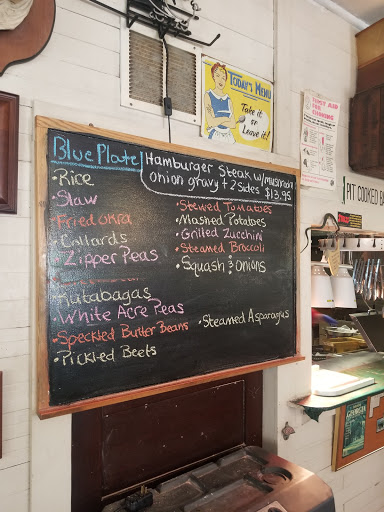 Blue Plate
Hamburger Steak w/mushroom
onion gravy + 2 sides $13.95
• Rice
• Slaw
• Fried okra
• Collards
• Zipper Peas
• Rutabagas
• White Acre Peas
• Speckled Butter Beans
• Pickled Beets
• Stewed Tomatoes
• Mashed Potatoes
• Grilled Zucchini
• Steamed Broccoli
• Squash & Onions
• Steamed Asparagus
TODAY'S MENU
Take it
or
Leave it!
PIT COOKED